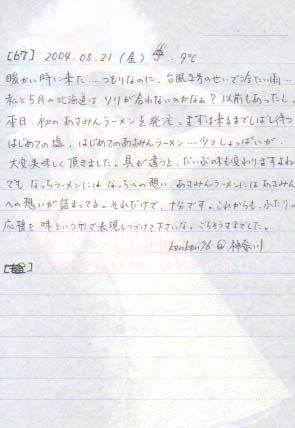 [67] 2004.05.21 (金) ☂..9℃
暖かい時に来た…つもりなのに、台風2号のせいで冷たい雨…
私と5月の北海道はソリが合わないのかなぁ？以前もあったし。
本日、初のあさみんラーメンを発注。まずは来るまでしばし待つ
はじめての塩。はじめてのあさみんラーメン…少々しょっぱいが、
大変美味しく頂きました。具が違うと、だいぶ味も変わりますよね
でも、なっちラーメンにはなっちへの想い、あさみんラーメンにはあさみん
への想いが詰まってる。それだけで、十分です。これからも、ふたりの
応援を味という形で表現しつづけて下さいな。ごちそうさまでした。
kenken76@神奈川